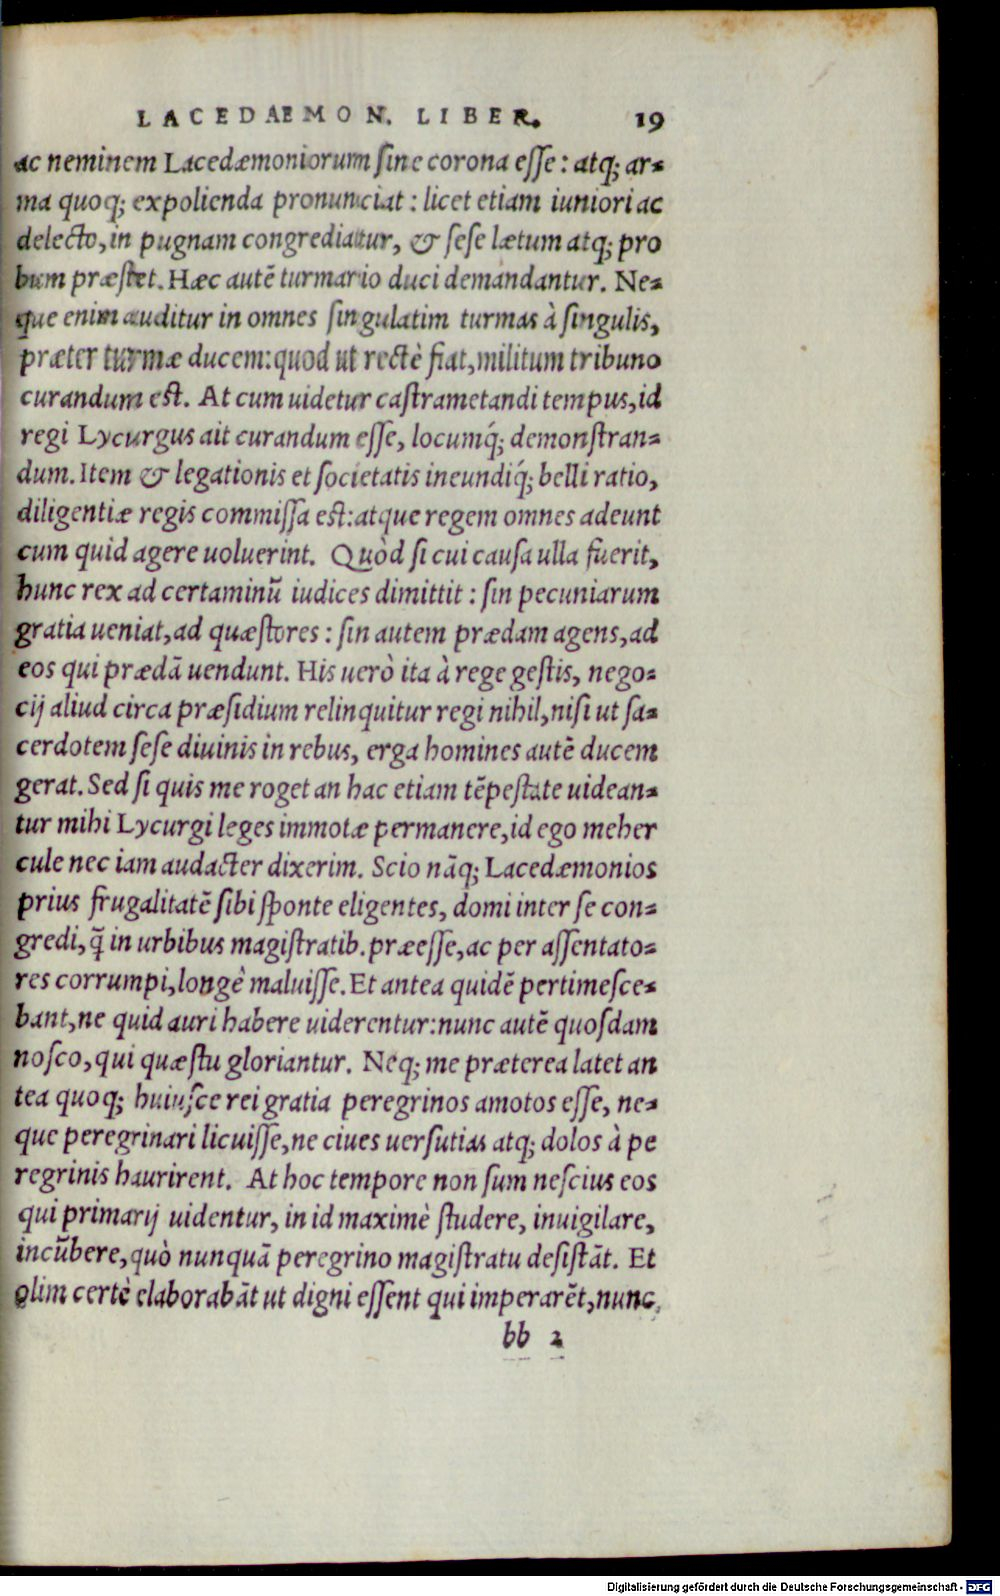 LACEDAEMON. LIBER. 19
ac neminem Lacedæmoniorum sine corona esse: atq; ar-
ma quoq; expolienda pronunciat: licet etiam iuniori ac
delecto, in pugnam congrediatur, & sese lætum atq; pro
bum præstet. Hæc autē turmario duci demandantur. Ne-
que enim auditur in omnes singulatim turmas à singulis,
præter turmæ ducem: quod ut rectè fiat, militum tribuno
curandum est. At cum uidetur castrametandi tempus, id
regi Lycurgus ait curandum esse, locumq́; demonstran-
dum. Item & legationis et societatis ineundiq́; belli ratio,
diligentiæ regis commissa est: atque regem omnes adeunt
cum quid agere uoluerint. Quòd si cui causa ulla fuerit,
hunc rex ad certaminū iudices dimittit: sin pecuniarum
gratia ueniat, ad quæstores: sin autem prædam agens, ad
eos qui prædā uendunt. His uerò ita à rege gestis, nego-
cij aliud circa præsidium relinquitur regi nihil, nisi ut sa-
cerdotem sese diuinis in rebus, erga homines autē ducem
gerat. Sed si quis me roget an hac etiam tēpestate uidean-
tur mihi Lycurgi leges immotæ permanere, id ego meher
cule nec iam audacter dixerim. Scio nāq; Lacedæmonios
prius frugalitatē sibi sponte eligentes, domi inter se con-
gredi, q̄ in urbibus magistratib. præesse, ac per assentato-
res corrumpi, longè maluisse. Et antea quidē pertimesce-
bant, ne quid auri habere uiderentur: nunc autē quosdam
nosco, qui quæstu gloriantur. Neq; me præterea latet an
tea quoq; huiusce rei gratia peregrinos amotos esse, ne-
que peregrinari licuisse, ne ciues uersutias atq; dolos à pe
regrinis haurirent. At hoc tempore non sum nescius eos
qui primarij uidentur, in id maximè studere, inuigilare,
incūbere, quò nunquā peregrino magistratu desistāt. Et
olim certè elaborabāt ut digni essent qui imperarēt, nunc
bb 2
Digitalisierung gefördert durch die Deutsche Forschungsgemeinschaft - DFG